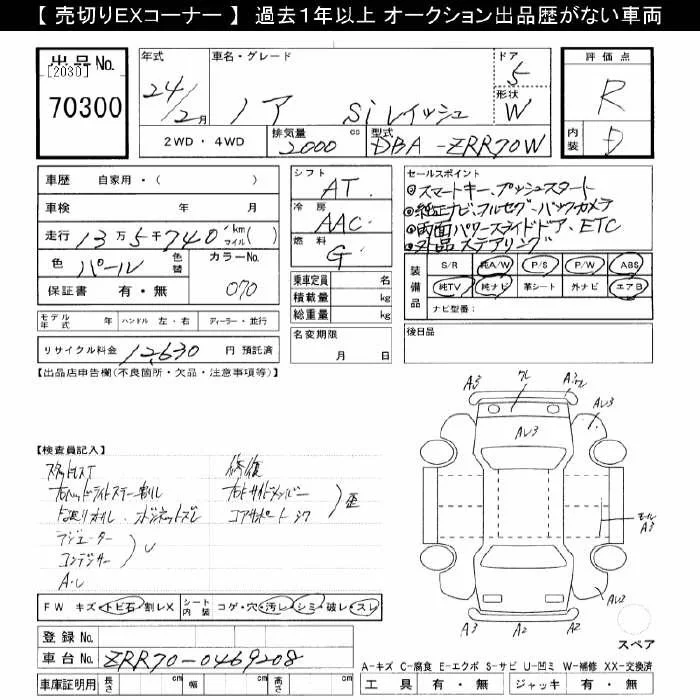 【 売切りEXコーナー 】 過去1年以上 オークション出品歴がない車両
出品No.
[2030]
70300
年式
24/2月
車名・グレード
ノア Si レイッシュ
ドア
5
形状
W
2WD ・ 4WD
排気量
2000 cc
型式
DBA-ZRR70W
評価点
R
内装
D
車歴 自家用・( )
車検 年 月
走行 13万5千740 km マイル( )
色 パール 色替
カラーNo.
070
保証書 有・無
モデル年式 年 ハンドル 左・右 ディーラー・並行
リサイクル料金 12,630 円 預託済
シフト
AT
冷房
AAC
燃料
G
乗車定員 名
積載量 kg
総重量 kg
名変期限
月 日
セールスポイント
◎スマートキー、プッシュスタート
◎純正ナビ、フルセグ・バックカメラ
◎両面パワースライドドア、ETC
◎外品ステアリング
装備品
S/R 純A/W P/S P/W ABS
純TV 純ナビ 革シート 外ナビ エアB
ナビ型番:
後日品
【出品店申告欄(不良箇所・欠品・注意事項等)】
【検査員記入】
スタットレスT
右ヘッドライトステー割れ
ボンネットズレ
ラジエーター
コンデンサー
U
修復
右Fサイドメンバー
コアサポート
歪
FW キズ・トビ石・割レX
シート内装 コゲ・穴・汚レ・シミ・破レ・スレ
登録No.
車台No. ZRR70-0469208
車庫証明用 長さ cm 幅 cm 高さ cm
A3
ワレ
A3
AU3
AU3
モール
A3
AU3
A2
A2
スペア
A-キズ C-腐食 E-エクボ S-サビ U-凹ミ W-補修 XX-交換済
工具 有・無 ジャッキ 有・無